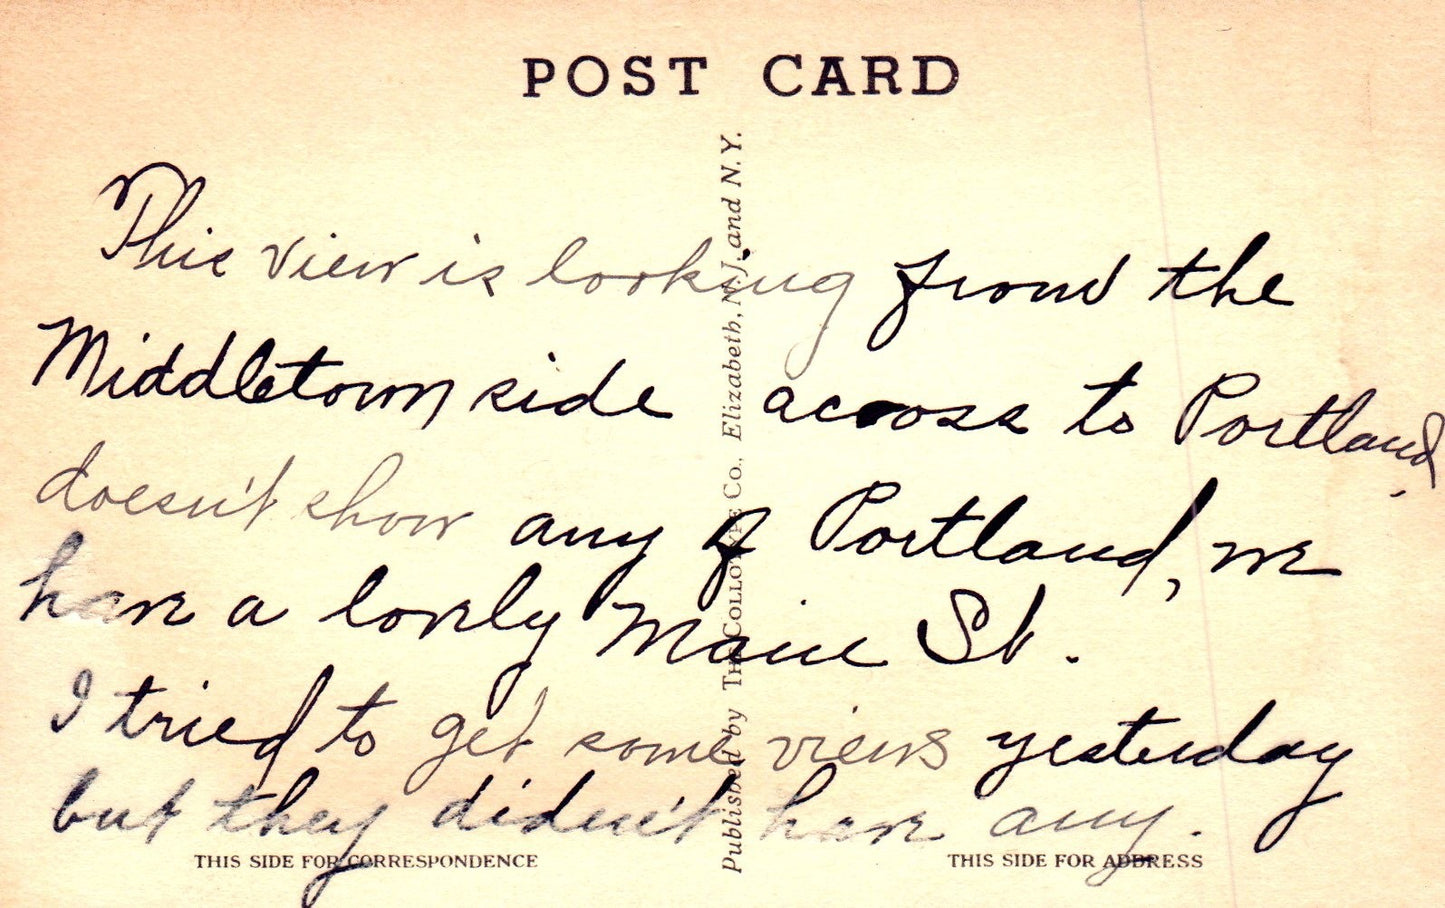 POST CARD
This view is looking from the
Middletown side across to Portland.
doesn't show any of Portland, we
have a lovely Main St.
I tried to get some views yesterday
but they didn't have any.
Published by The Collotype Co., Elizabeth, N.J. and N.Y.
THIS SIDE FOR CORRESPONDENCE
THIS SIDE FOR ADDRESS